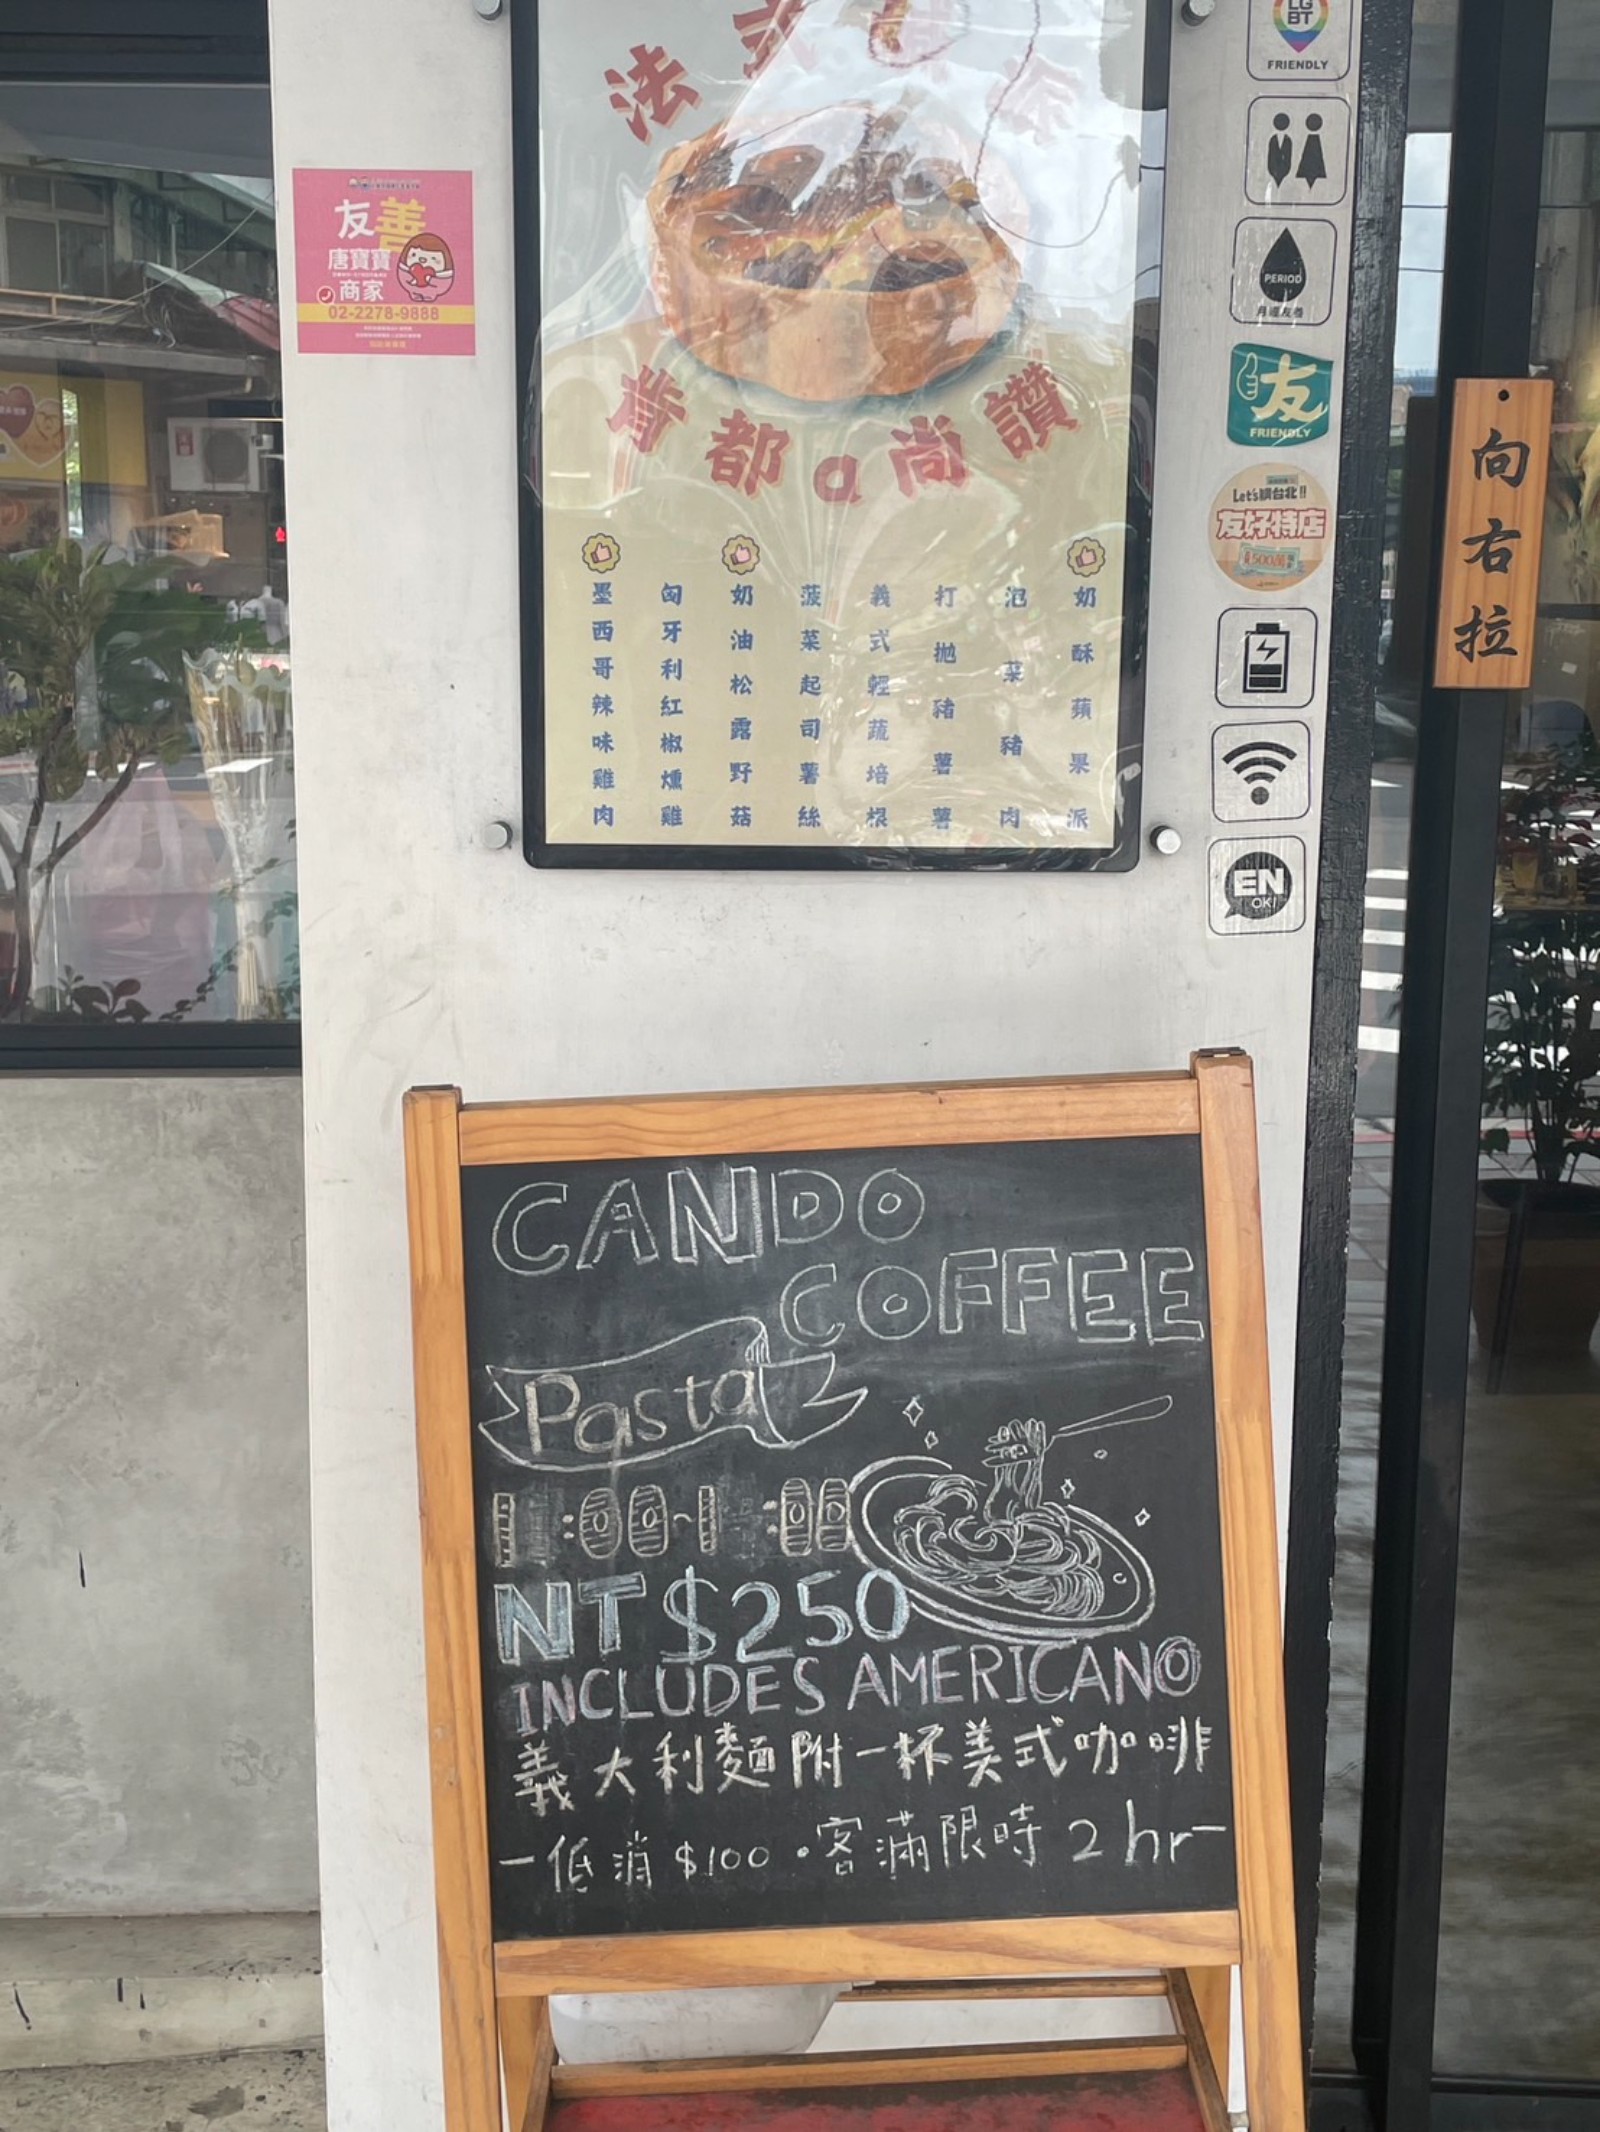 法式
背都a尚讚
墨西哥辣味雞肉
匈牙利紅椒燻雞
奶油松露野菇
菠菜起司薯絲
義式輕蔬培根
打拋豬薯薯
泡菜豬肉
奶酥蘋果派
友善
唐寶寶
商家
02-2278-9888
LG
BT
FRIENDLY
PERIOD
月經友善
友
FRIENDLY
Let's購台北!!
友好特店
500萬
EN
OK!
向右拉
CANDO
COFFEE
Pasta
NT$250
INCLUDES AMERICANO
義大利麵附一杯美式咖啡
－低消$100・客滿限時2hr－